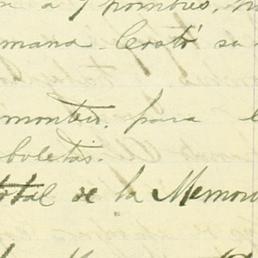 a 7 hombres,
mana. Costó su
montes, para
boletas.
total de la Memor